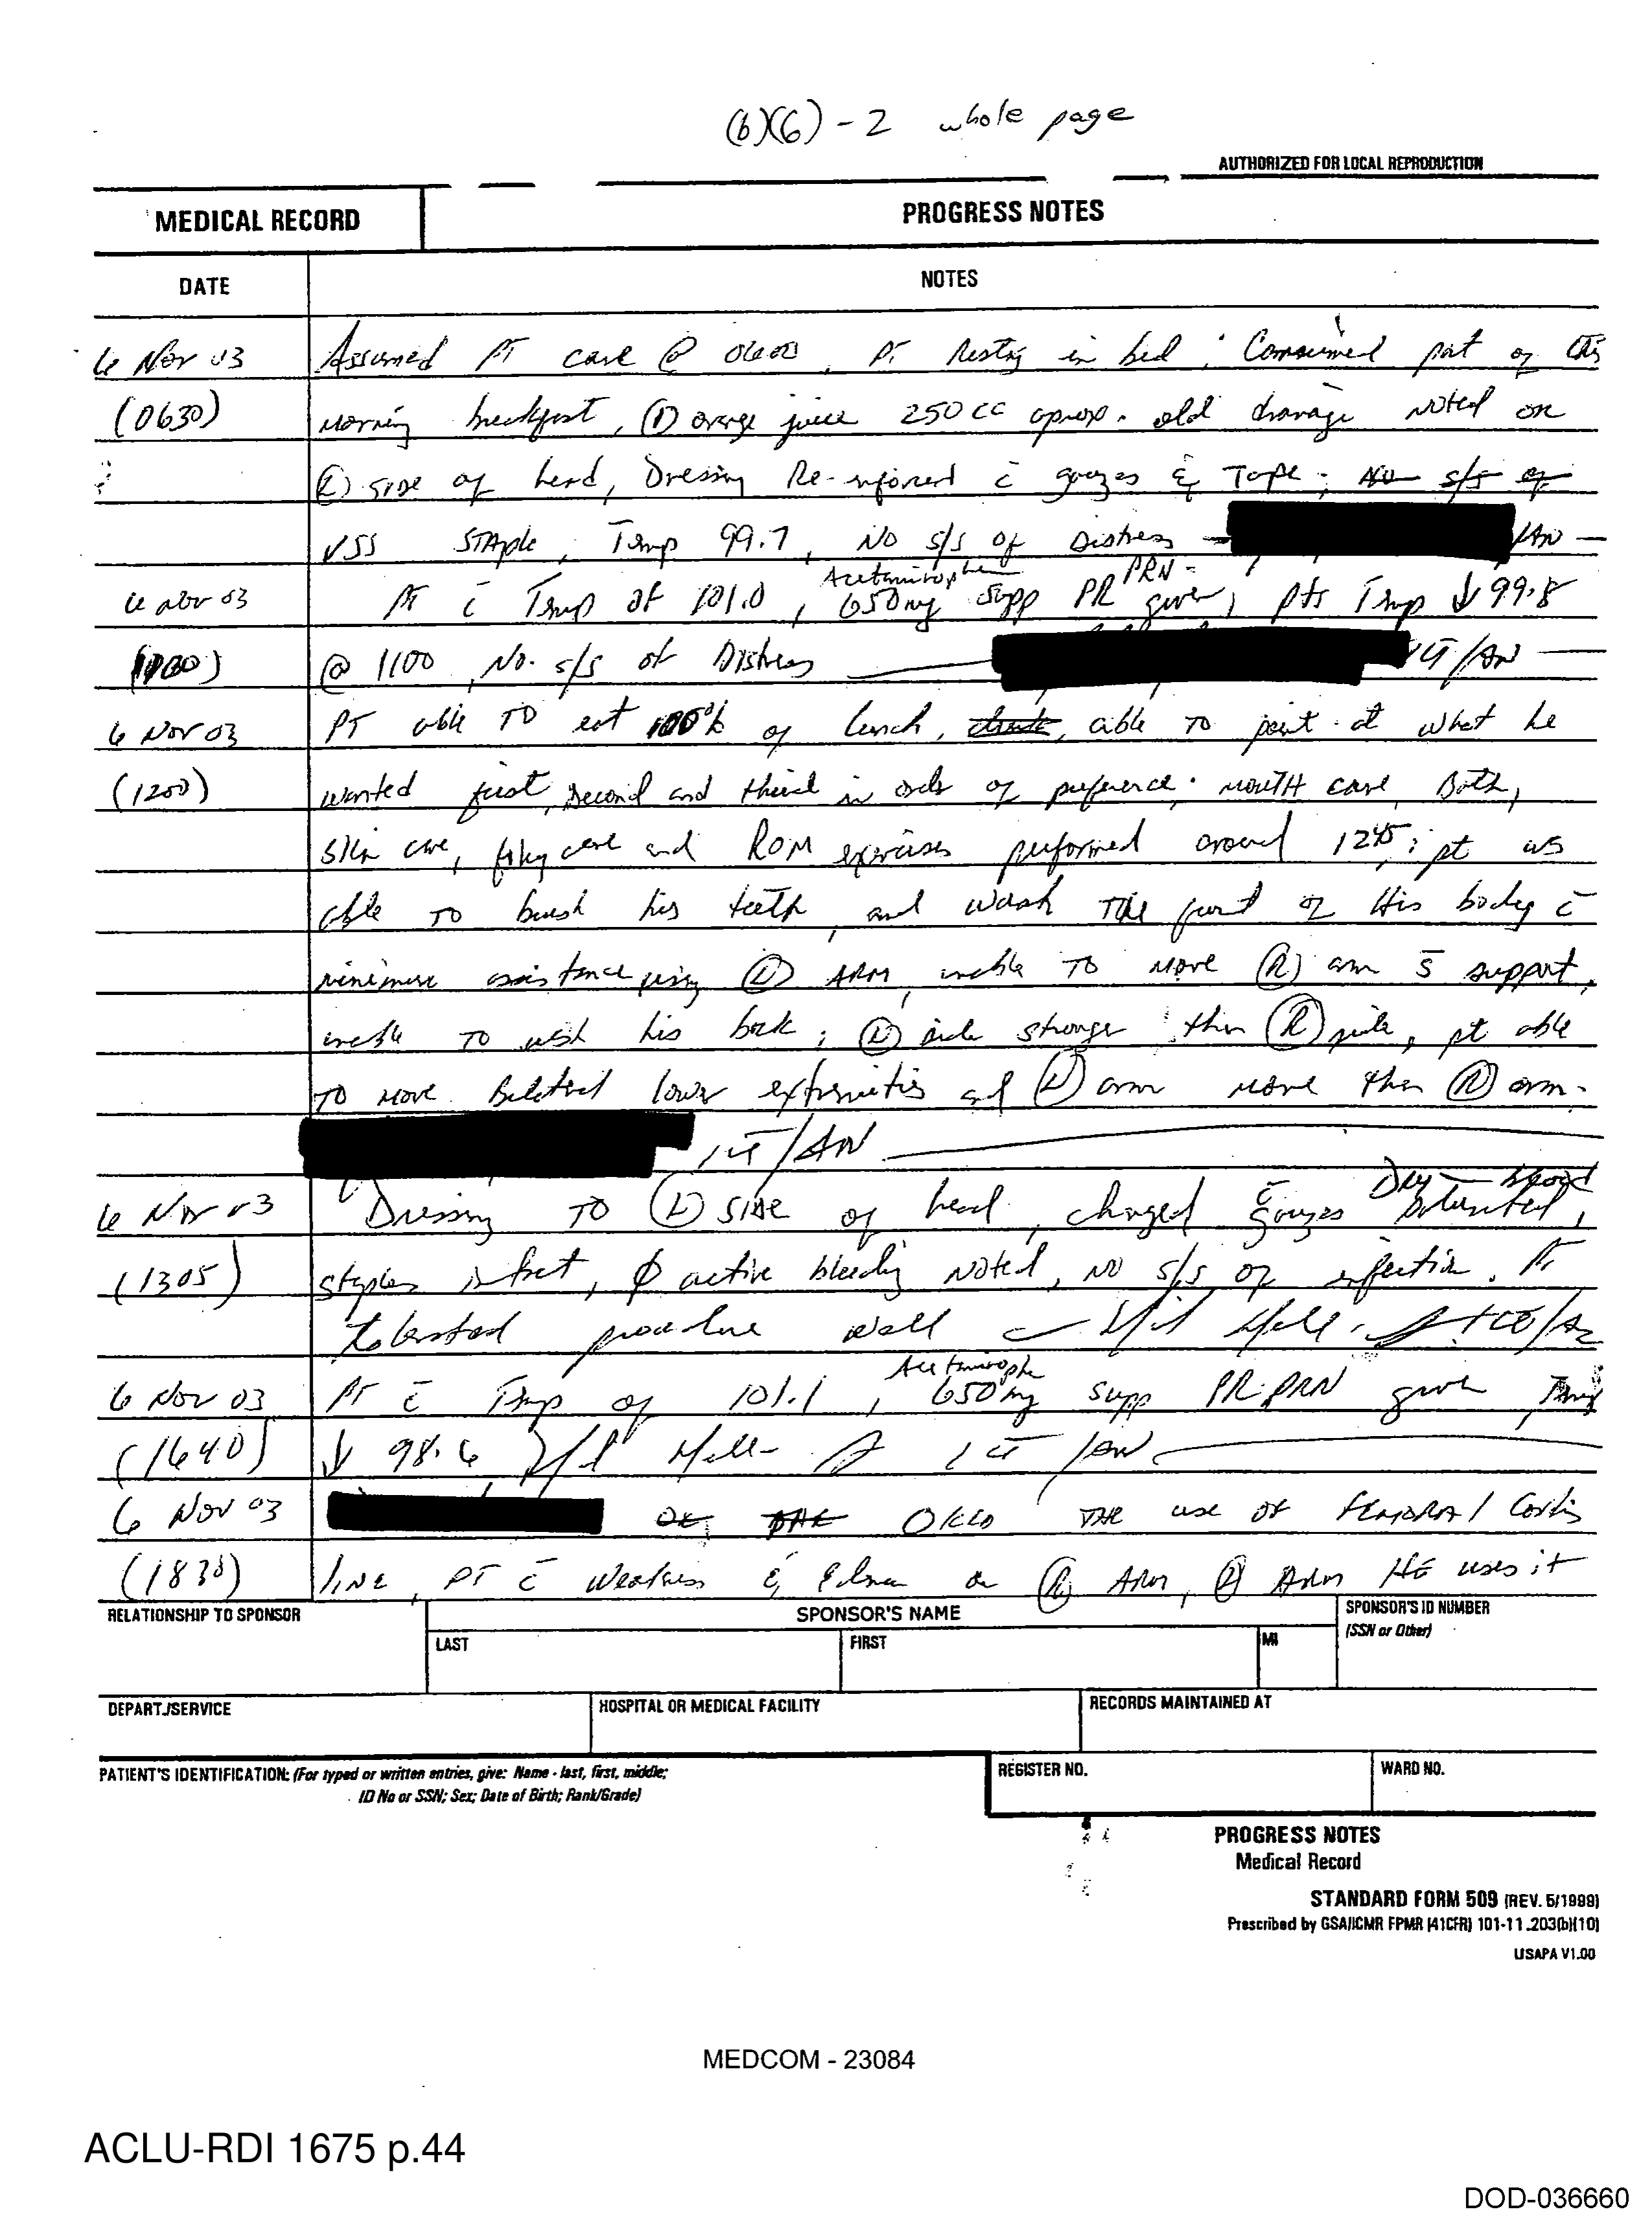 (b)(6) - 2 whole page
AUTHORIZED FOR LOCAL REPRODUCTION
MEDICAL RECORD
PROGRESS NOTES
DATE
NOTES
6 Nov 03 Assumed PT care @ 0600, Pt Resting in bed; Consumed part of this
(0630) morning breakfast, (1) orange juice 250cc aprox. old dranage noted on
(L) side of head, Dressing Re-inforced c̄ gauzes & Tape; No s/s of
VSS STAple, Temp 99.7, No s/s of Distress /AN
6 Nov 03 Pt c̄ Temp of 101.0, Acetaminophe 650mg supp PR PRN given, pts Temp ↓ 99.8
@ 1100, No. s/s of Distress 1LT/AN
6 Nov 03 PT able TO eat 100% of lunch, able TO point at what he
(1200) wanted first, second and third in order of preference; mouth care, Bath,
skin care, foley care and ROM exercises performed around 1245; pt was
able TO brush his teeth, and wash THE front of His body c̄
minimum assistance using (L) ARM, unable TO move (R) arm s̄ support,
unable TO wash his back; (L) side stronger then (R) side, pt able
TO move Bilateral lower extremities and (L) arm more then (R) arm.
1LT/AN
6 Nov 03 Dressing TO (L) side of head, changed c̄ gauzes Dry blood saturated,
(1305) staples intact, φ active bleeding noted, no s/s of infection. Pt
tolerated procedure well
6 Nov 03 Pt c̄ Temp of 101.1, Acetaminophe 650mg supp PR PRN given, Temp
(1640) ↓ 98.6 1LT/AN
6 Nov 03 OK THE OKed THE use of FEMORAl Cordis
(1830) line, PT c̄ Weakness & Edema on (R) Arm, (L) Arm HE uses it
RELATIONSHIP TO SPONSOR
SPONSOR'S NAME
SPONSOR'S ID NUMBER
(SSN or Other)
LAST
FIRST
MI
DEPART./SERVICE
HOSPITAL OR MEDICAL FACILITY
RECORDS MAINTAINED AT
PATIENT'S IDENTIFICATION: (For typed or written entries, give: Name - last, first, middle;
ID No or SSN; Sex; Date of Birth; Rank/Grade)
REGISTER NO.
WARD NO.
PROGRESS NOTES
Medical Record
STANDARD FORM 509 (REV. 5/1999)
Prescribed by GSA/ICMR FPMR (41CFR) 101-11.203(b)(10)
USAPA V1.00
MEDCOM - 23084
ACLU-RDI 1675 p.44
DOD-036660